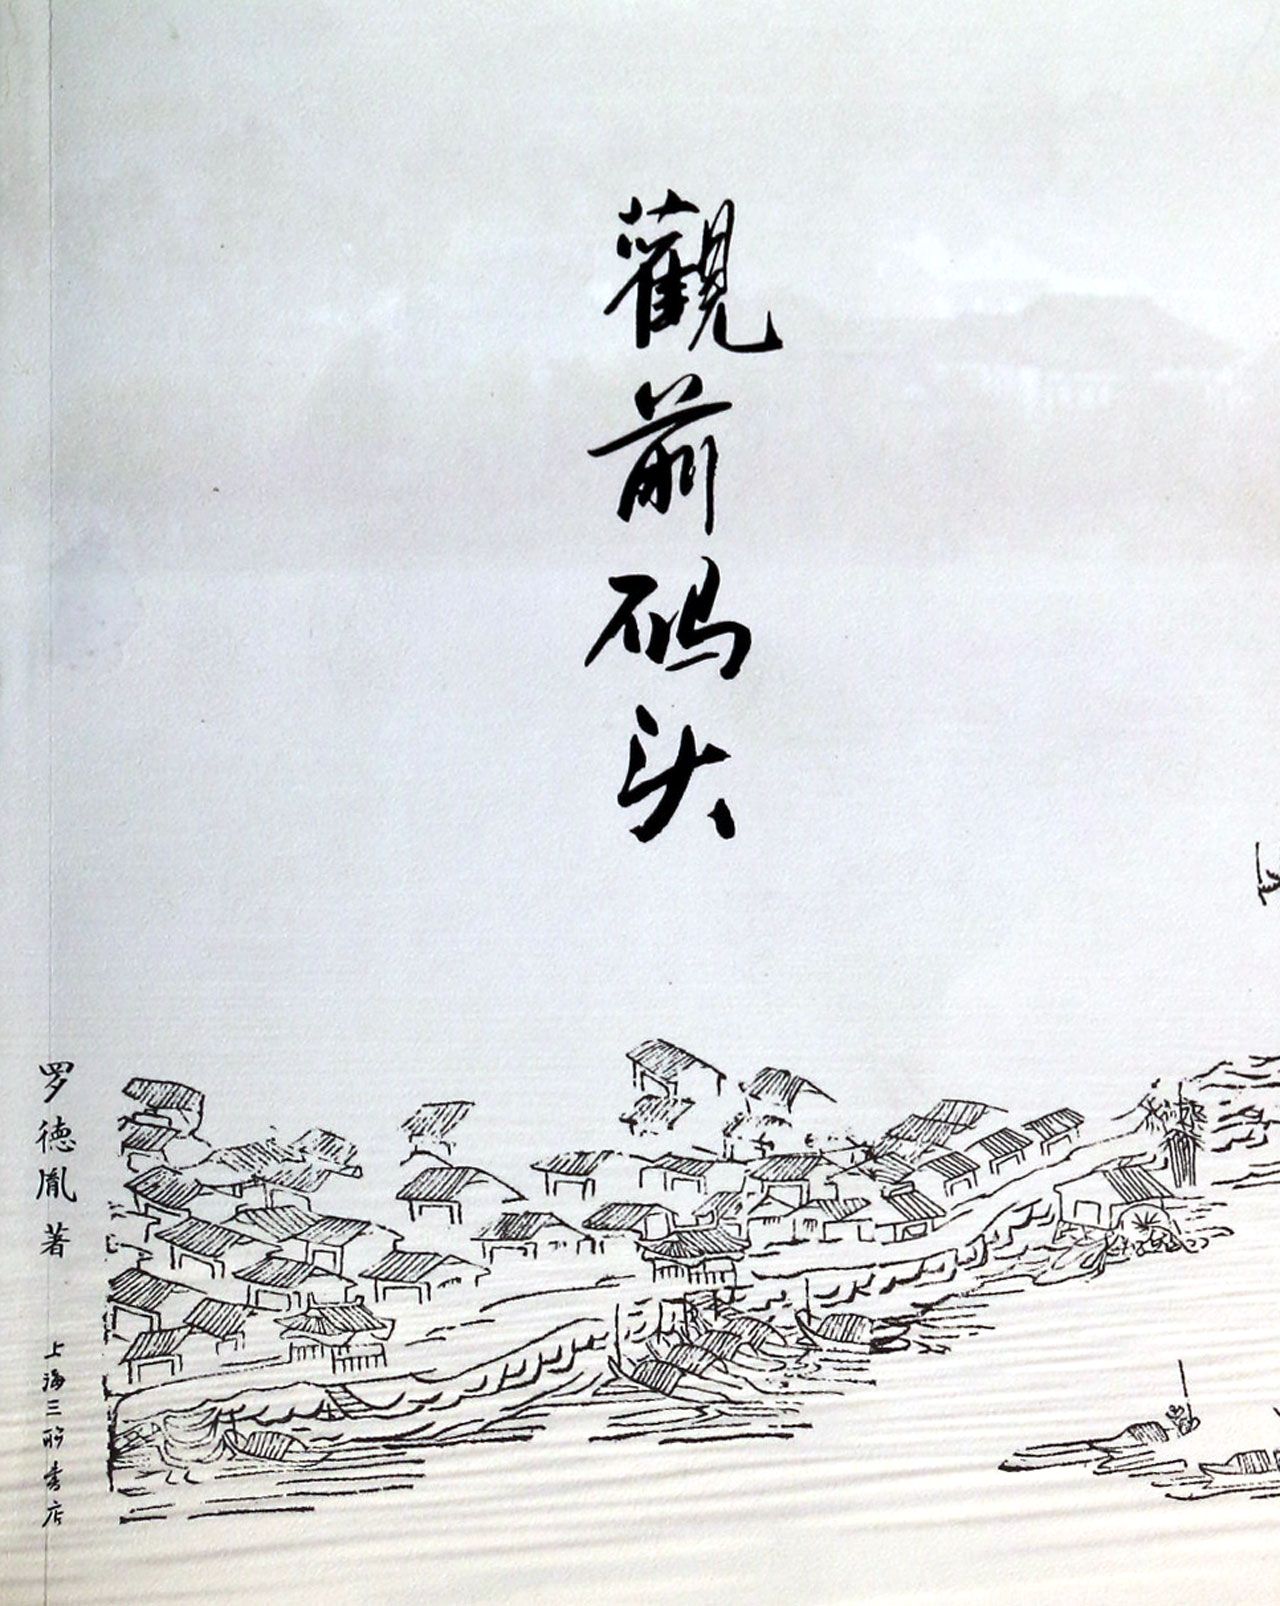 觀前码头
罗德胤 著
上海三联书店